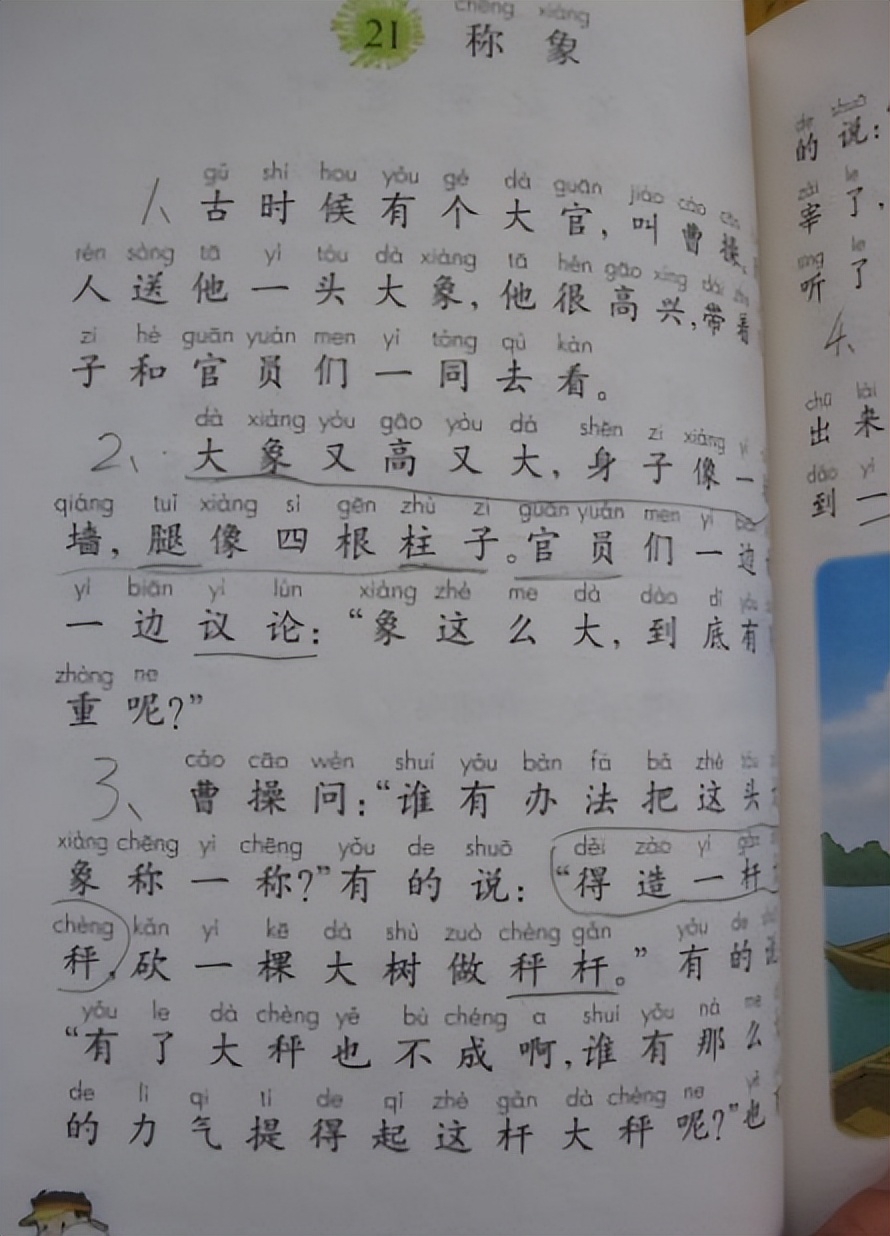 chēng xiàng
21 称象
gǔ shí hou yǒu gè dà guān jiào cáo cāo
1、古时候有个大官，叫曹操，
rén sòng tā yì tóu dà xiàng tā hěn gāo xìng dài
人送他一头大象，他很高兴，带着
zi hé guān yuán men yì tóng qù kàn
子和官员们一同去看。
dà xiàng yòu gāo yòu dà shēn zi xiàng yì
2、大象又高又大，身子像一
qiáng tuǐ xiàng sì gēn zhù zi guān yuán men yì
墙，腿像四根柱子。官员们一边
yì biān yì lùn xiàng zhè me dà dào dǐ yǒu
一边议论：“象这么大，到底有
zhòng ne
重呢？”
cáo cāo wèn shuí yǒu bàn fǎ bǎ zhè
3、曹操问：“谁有办法把这头
xiàng chēng yì chēng yǒu de shuō děi zào yì gǎn
象称一称？”有的说：“得造一杆
chèng kǎn yì kē dà shù zuò chèng gǎn yǒu de
秤，砍一棵大树做秤杆。”有的说
yǒu le dà chèng yě bù chéng a shuí yǒu nà me
“有了大秤也不成啊，谁有那么
de lì qi tí de qǐ zhè gǎn dà chèng ne yě
的力气提得起这杆大秤呢？”也
de shuō
的说：
zǎi le
宰了，
tīng le
听了
4、
chū lái
出来
dào yì
到一